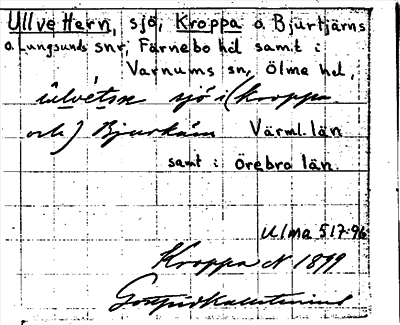 Ullvettern, sjö, Kroppa o. Bjurtjärns
o. Lungsunds snr, Färnebo hd samt i
Varnums sn, Ölme hd,
ùlvétsn sjö i (Kroppa
och) Bjurkärn Värml. län
samt i Örebro län.
Ulma 517:96
Kroppa N 1899
Gottfrid Kallstenius